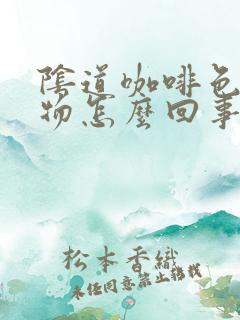 陰道咖啡色
物怎麼回事
松本香織
未经同意禁止转载